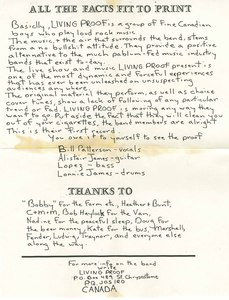 ALL THE FACTS FIT TO PRINT
Basically, LIVING PROOF is a group of Fine Canadian
boys who play loud rock music.
The music, & the air that surrounds the band, stems
from a no bullshit attitude. They provide a positive
alternative to the much publi- Fed music industry
bands that exist to-day.
The live show and music LIVING PROOF present is
one of the most dynamic and forceful experiences
that has ever been unleashed on unsuspecting
audiences any where.
The original material they perform, as well as choice
cover tunes, show a lack of following of any particular
trend or Fad. LIVING PROOF is moving any way they
want to go. Put aside the fact that they will clean you
out of your cigarettes, the band members are alright.
This is their first record.
You owe it to yourself to see the proof
Bill Patterson - vocals
Alistair James - guitar
Lopez - bass
Lonnie James - drums
THANKS TO
"Bobby" for the Farm etc, Heather & Bunt,
Bob for the Van,
Nadine for the peaceful sleep, Doug for
the beer money, Kate for the bus, Marshall,
Fender, Ludwig, Traynor, and everyone else
along the way.
For more info on the band
write
LIVING PROOF
P.O. Box 449 St. Chrysostome
P.Q. J0S 1R0
CANADA